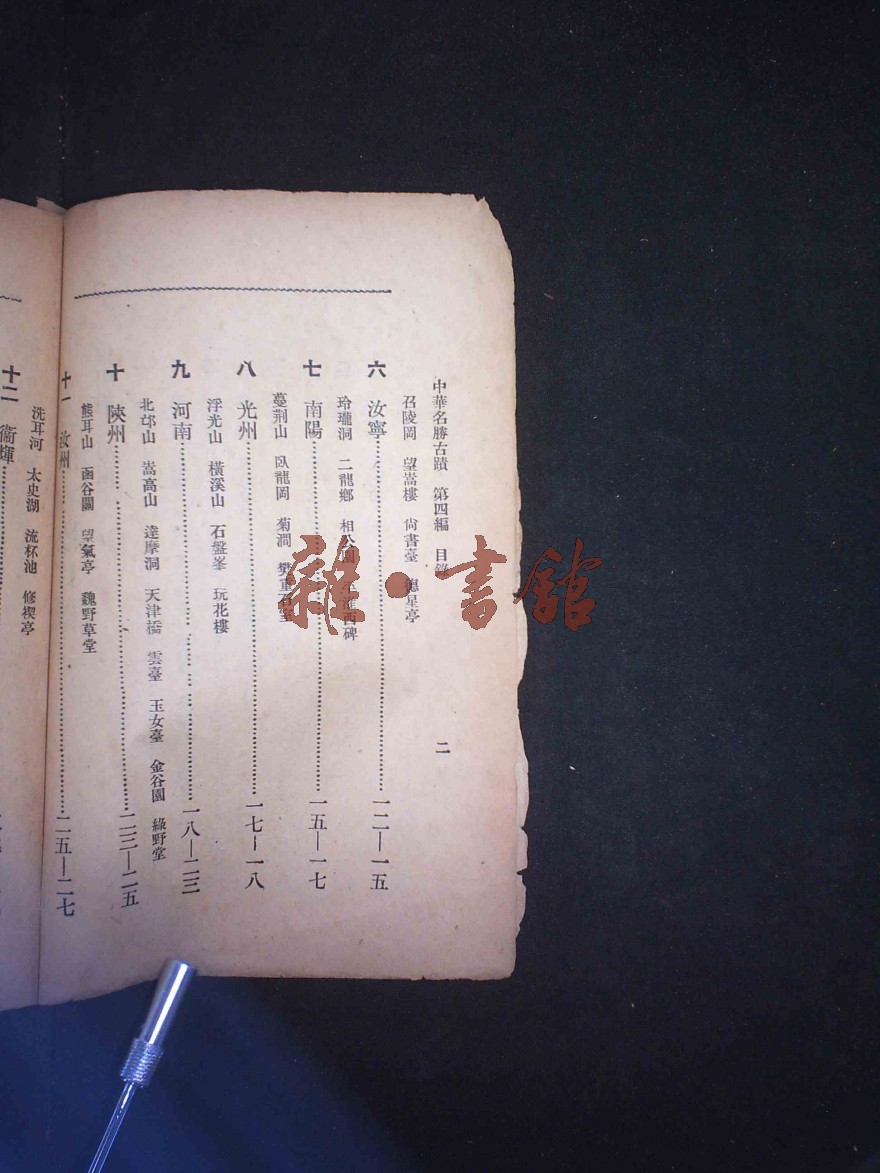 中華名勝古蹟　第四編　目錄　二
召陵岡　望嵩樓　尙書臺　德星亭
六　汝寧…………一二—一五
玲瓏洞　二龍鄉　相公　淮西碑
七　南陽…………一五—一七
蔓荆山　臥龍岡　菊澗　樊重石室
八　光州…………一七—一八
浮光山　橫溪山　石盤峯　玩花樓
九　河南…………一八—二三
北邙山　嵩高山　達摩洞　天津橋　雲臺　玉女臺　金谷園　綠野堂
十　陝州…………二三—二五
熊耳山　函谷關　望氣亭　魏野草堂
十一　汝州…………二五—二七
洗耳河　太史湖　流杯池　修禊亭
十二　衞輝
雜·書館